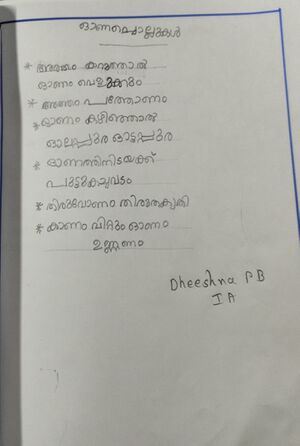 ഓണച്ചൊല്ലുകൾ
* അത്തം കറുത്താൽ
ഓണം വെളുക്കും
* അത്തം പത്തോണം
* ഓണം കഴിഞ്ഞാൽ
ഓലപ്പുര ഓട്ടപ്പുര
* ഓണത്തിനിടയ്ക്ക്
പുട്ടുകച്ചവടം
* തിരുവോണം തിരുതകൃതി
* കാണം വിറ്റും ഓണം
ഉണ്ണണം
Dheeshna P B
I A